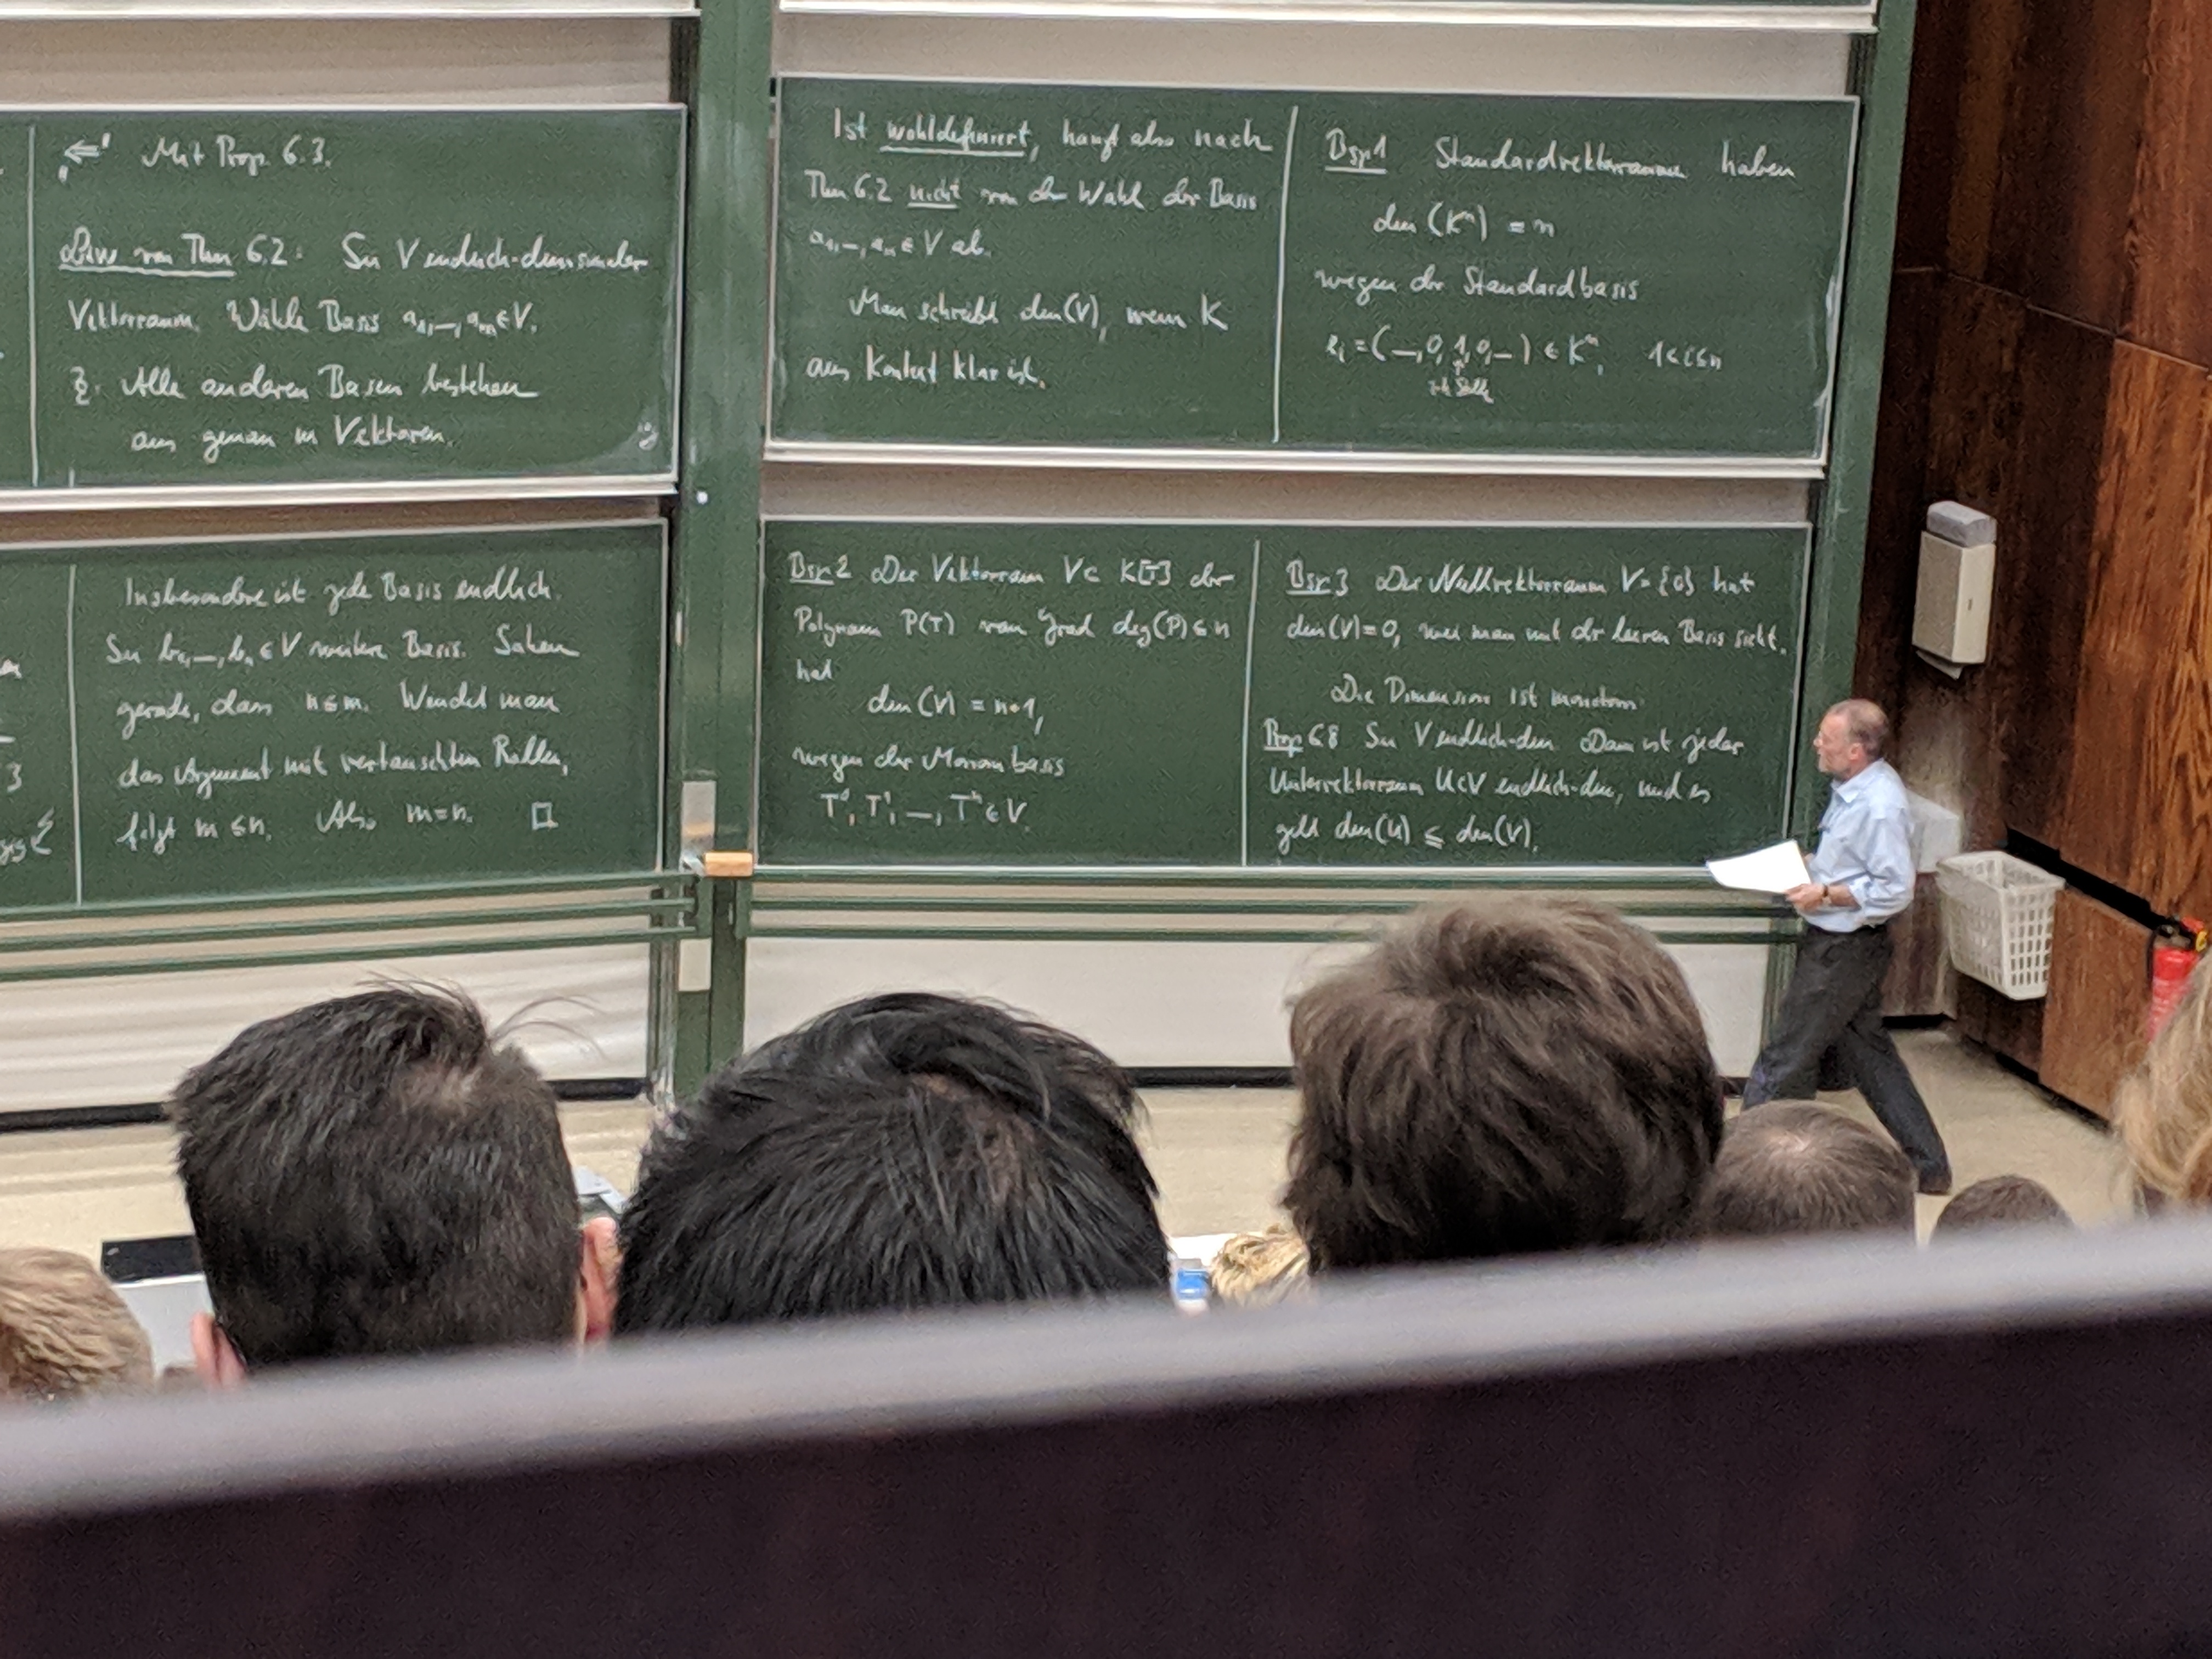 "⇐" Mit Prop. 6.3.
Bew von Thm 6.2: Sei V endlich-dimensionaler
Vektorraum. Wähle Basis a₁,—,aₘ ∈ V.
Z: Alle anderen Basen bestehen
aus genau m Vektoren.
Insbesondere ist jede Basis endlich.
Sei b₁,—,bₙ ∈ V weitere Basis. Sahen
gerade, dass n ≤ m. Wendet man
das Argument mit vertauschten Rollen,
folgt m ≤ n. Also m=n. □
3
Ist wohldefiniert, hängt also nach
Thm 6.2 nicht von der Wahl der Basis
a₁,—,aₙ ∈ V ab.
Man schreibt dim(V), wenn K
aus Kontext klar ist.
Bsp 1 Standardvektorräume haben
dim (Kⁿ) = n
wegen der Standardbasis
eᵢ = (—,0,1,0,—) ∈ Kⁿ, 1≤i≤n
i-te Stelle
Bsp 2 Der Vektorraum V ⊂ K[T] der
Polynome P(T) vom Grad deg(P) ≤ n
hat
dim (V) = n+1,
wegen der Monombasis
T⁰, T¹, —, Tⁿ ∈ V.
Bsp 3 Der Nullvektorraum V = {0} hat
dim(V)=0, wie man mit der leeren Basis sieht.
Die Dimension ist monoton:
Prop 6.8 Sei V endlich-dim. Dann ist jeder
Untervektorraum U⊂V endlich-dim, und es
gilt dim(U) ≤ dim(V).